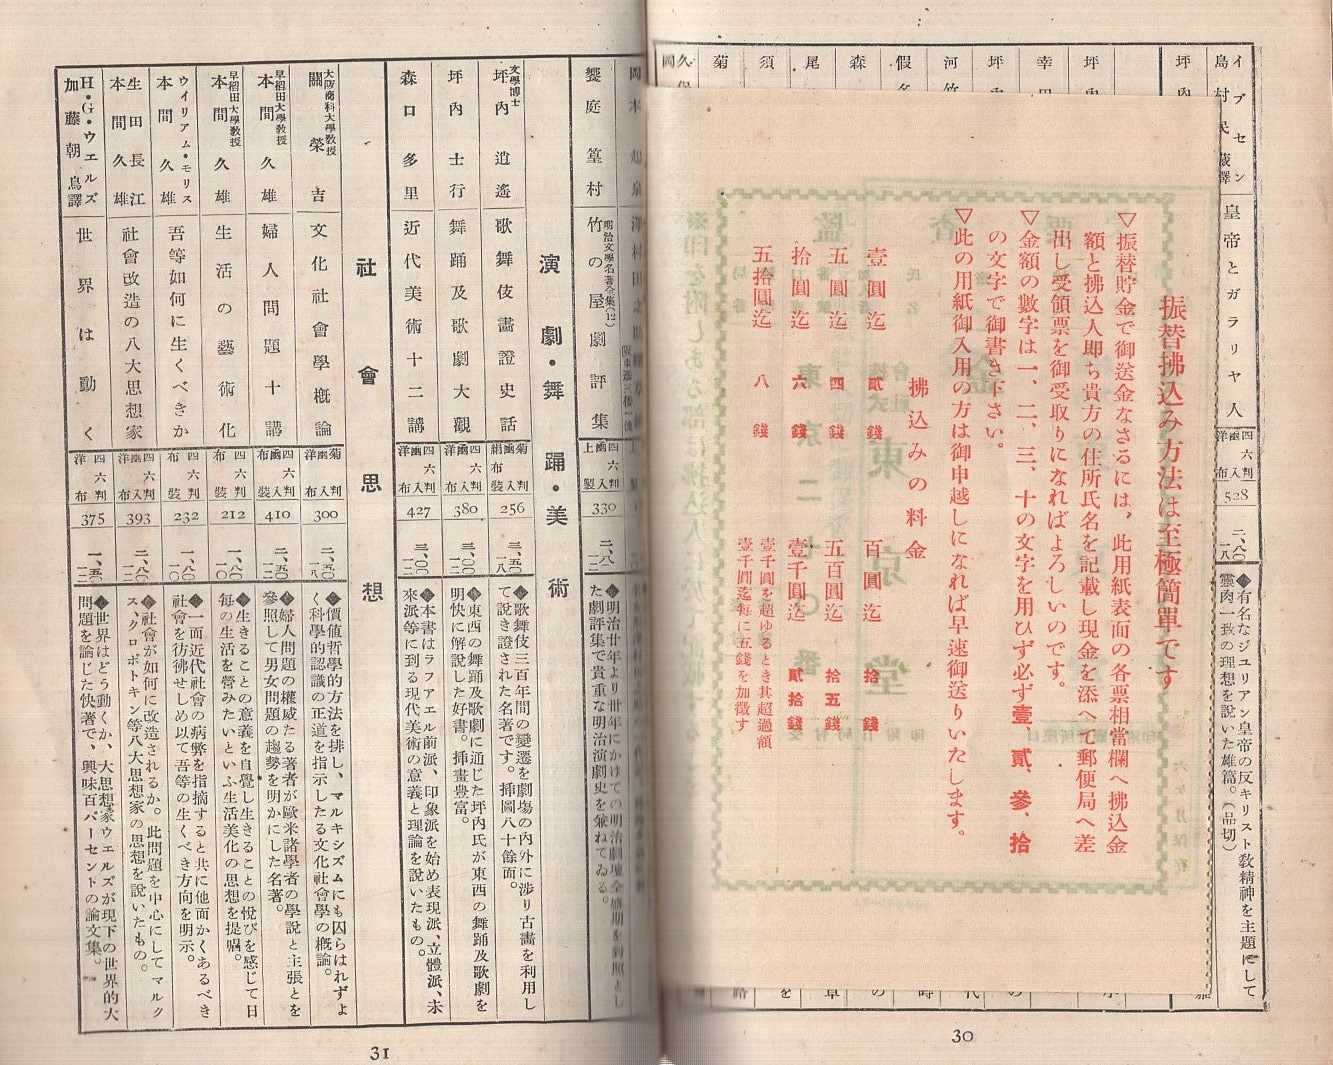 イプセン
島村民蔵譯
皇帝とガラリヤ人
四六判
凾入
洋布
528
二、八〇
一八
◆有名なジュリアン皇帝の反キリスト敎精神を主題にして
靈肉一致の理想を說いた雄篇。(品切)
坪內
坪
幸田
坪內
河竹
假名
森
尾
須
菊
久保
岡
振替拂込み方法は至極簡單です
▽振替貯金で御送金なさるには、此用紙表面の各票相當欄へ拂込金
額と拂込人卽ち貴方の住所氏名を記載し現金を添へて郵便局へ差
出し受領票を御受取りになればよろしいのです。
▽金額の數字は一、二、三、十の文字を用ひず必ず壹、貳、參、拾
の文字で御書き下さい。
▽此の用紙御入用の方は御申越しになれば早速御送りいたします。
拂込みの料金
壹圓迄 貳錢
五圓迄 四錢
拾圓迄 六錢
五拾圓迄 八錢
百圓迄 拾錢
五百圓迄 拾五錢
壹千圓迄 貳拾錢
壹千圓を超ゆるとき其超過額
壹千圓迄每に五錢を加徵す
30
饗庭篁村
明治文學名著全集(12)
竹の屋劇評集
四六判
凾入
上製
330
二、八〇
一二
◆明治廿年より卅年にかけての明治劇壇全盛期を對照とし
た劇評集で貴重な明治演劇史を兼ねてゐる。
演劇・舞踊・美術
文學博士
坪內逍遙
歌舞伎畫證史話
菊判
凾入
絹布裝
256
三、五〇
一八
◆歌舞伎三百年間の變遷を劇場の內外に涉り古畫を利用し
て說き證された名著です。揷圖八十餘面。
坪內士行
舞踊及歌劇大觀
四六判
凾入
洋布
380
三、〇〇
一二
◆東西の舞踊及歌劇に通じた坪內氏が東西の舞踊及歌劇を
明快に解說した好書。揷畫豐富。
森口多里
近代美術十二講
四六判
凾入
洋布
427
三、〇〇
一二
◆本書はラフアエル前派、印象派を始め表現派、立體派、未
來派等に到る現代美術の意義と理論を說いたもの。
社會思想
大阪商科大學敎授
關榮吉
文化社會學槪論
菊判
凾入
洋布
300
二、五〇
一八
◆價値哲學的方法を排し、マルキシズムにも囚らはれずよ
く科學的認識の正道を指示したる文化社會學の槪論。
早稻田大學敎授
本間久雄
婦人問題十講
四六判
凾入
布裝
410
二、五〇
一二
◆婦人問題の權威たる著者が歐米諸學者の學說と主張とを
參照して男女問題の趨勢を明かにした名著。
早稻田大學敎授
本間久雄
生活の藝術化
四六判
布裝
212
一、八〇
一〇
◆生きることの意義を自覺し生きることの悅びを感じて日
每の生活を營みたいといふ生活美化の思想を提唱。
ウイリアム・モリス
本間久雄
吾等如何に生くべきか
四六判
布裝
232
一、八〇
一〇
◆一面近代社會の病弊を指摘すると共に他面かくあるべき
社會を彷彿せしめ以て吾等の生くべき方向を明示。
生田長江
本間久雄
社會改造の八大思想家
四六判
凾入
洋布
393
二、八〇
一二
◆社會が如何に改造されるか。此問題を中心にしてマルク
ス、クロポトキン等八大思想家の思想を說いたもの。
H・G・ウエルズ
加藤朝鳥譯
世界は動く
四六判
洋布
375
一、五〇
一二
◆世界はどう動くか、大思想家ウエルズが現下の世界的大
問題を論じた快著で、興味百パーセントの論文集。
31